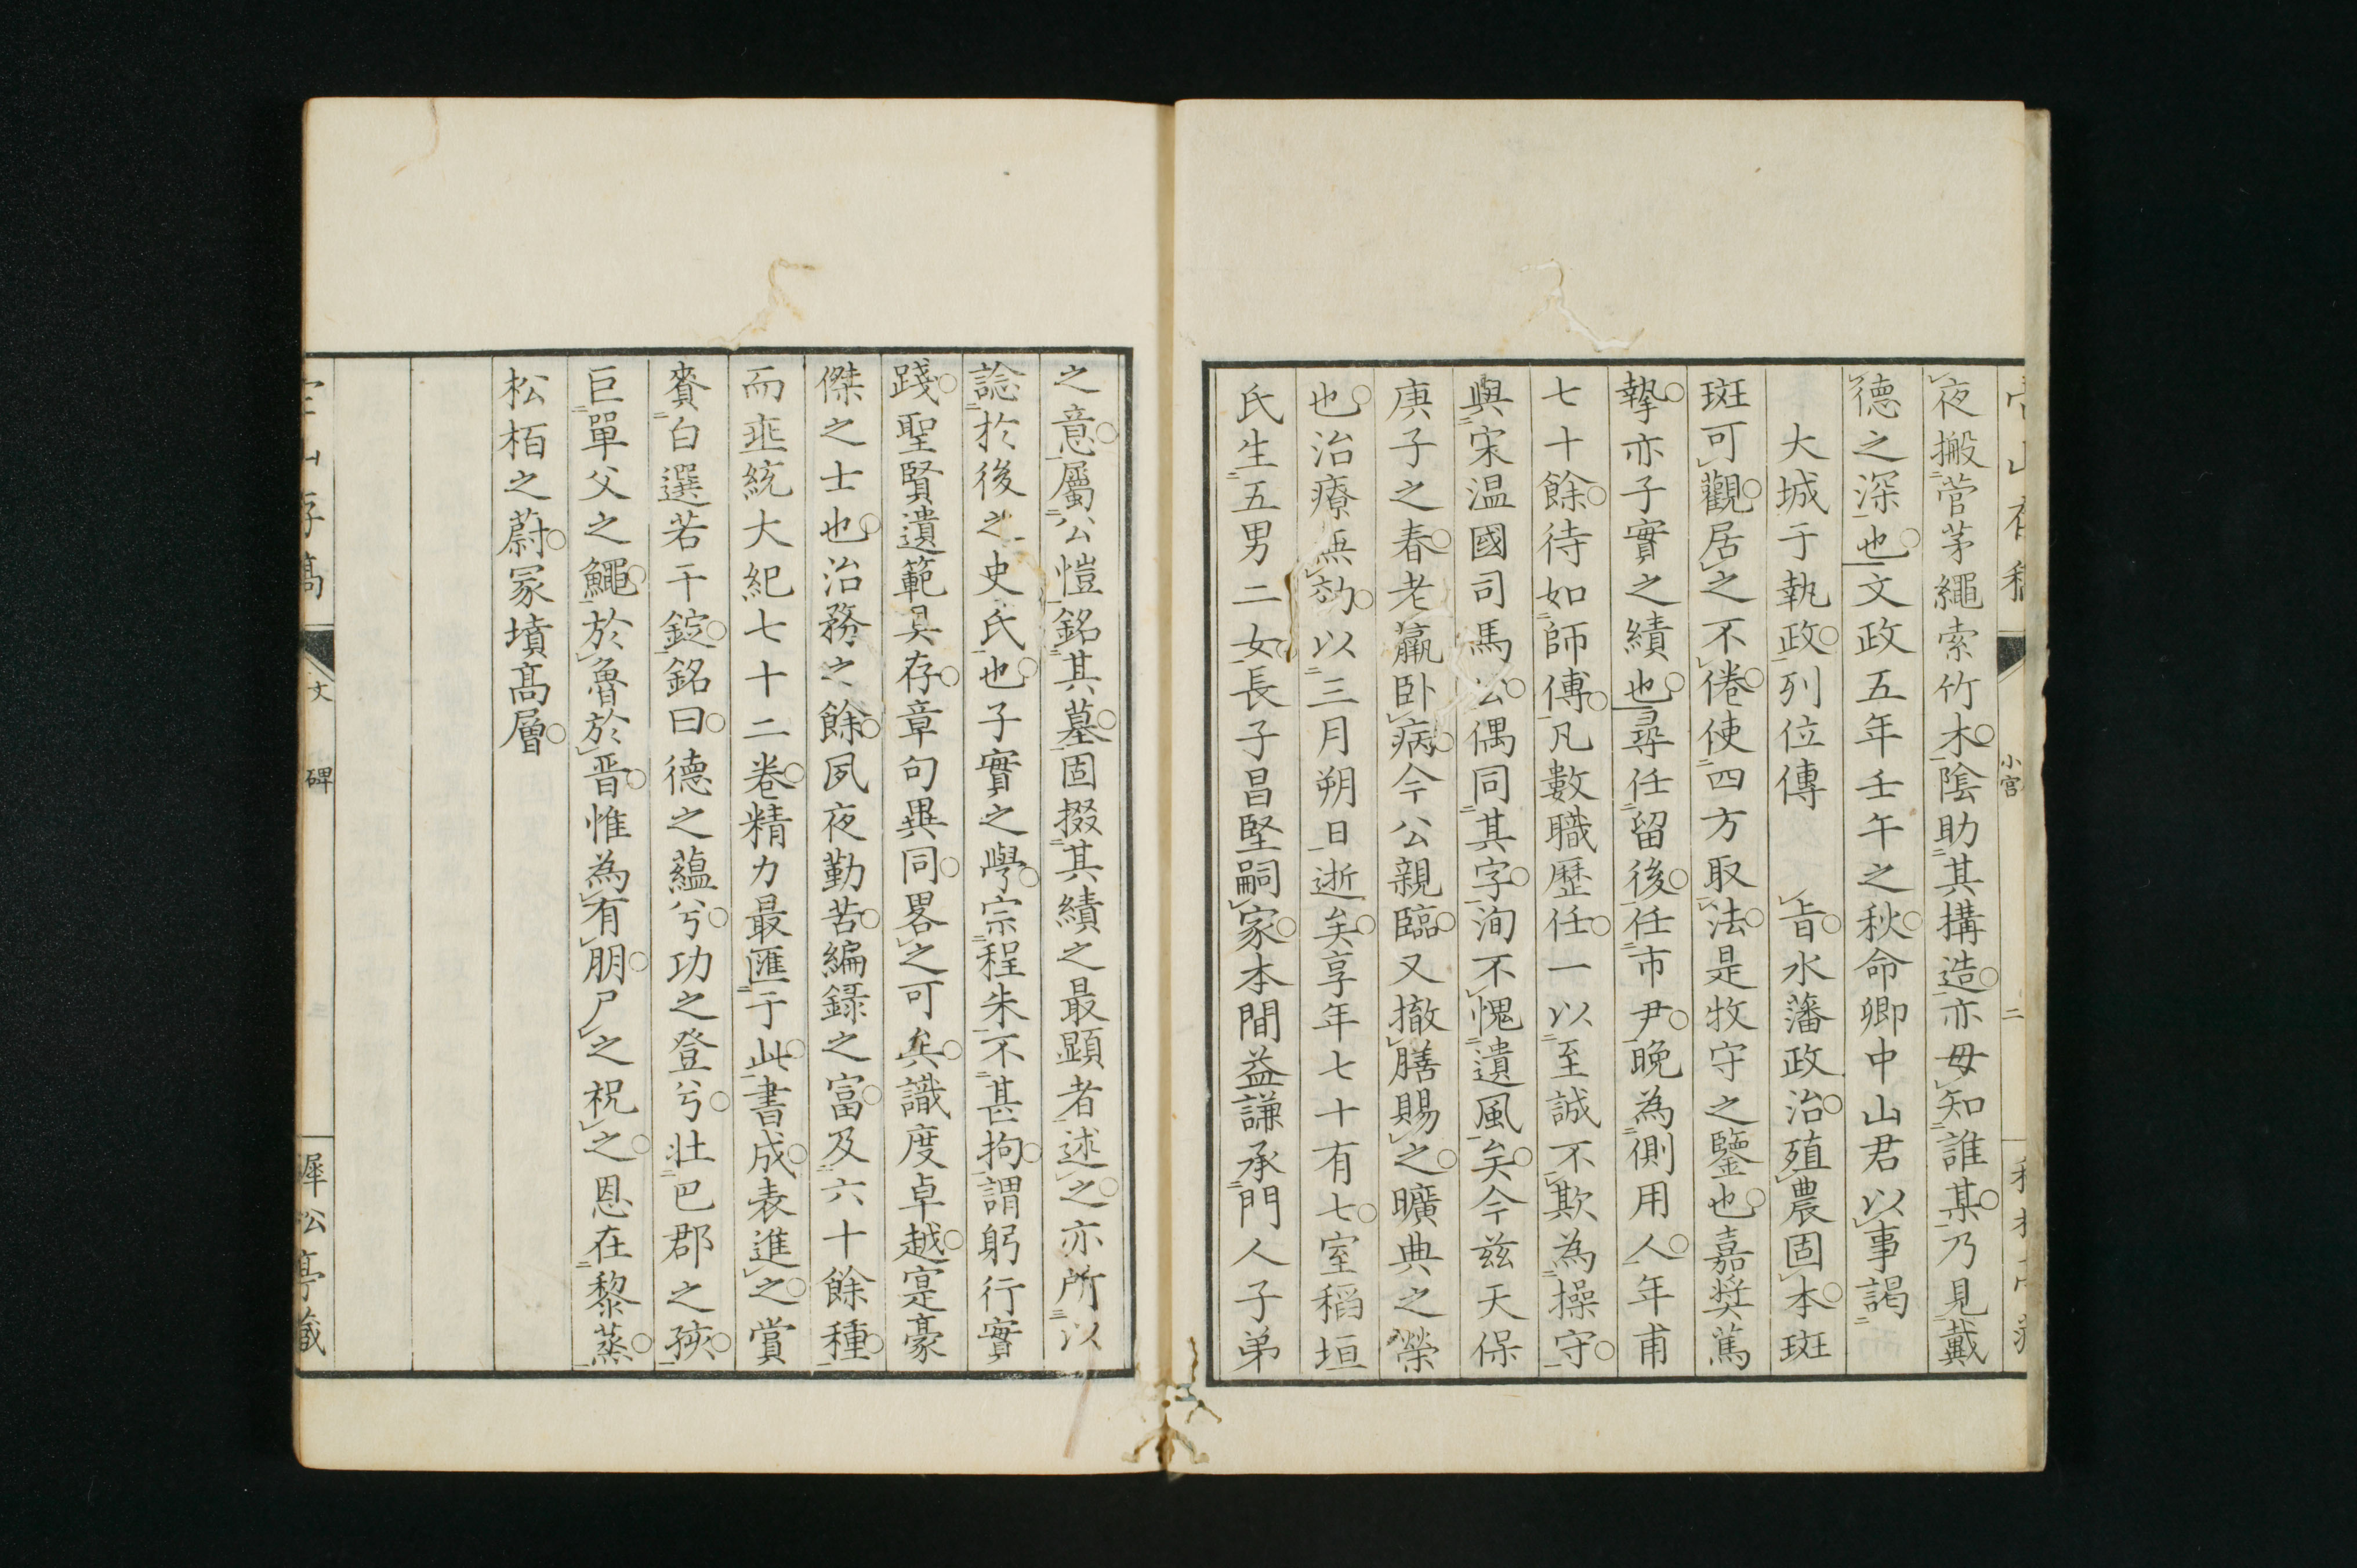 夜搬菅茅繩索竹木陰助其搆造亦毋知誰某乃見戴
德之深也文政五年壬午之秋命卿中山君以事謁
大城于執政列位傳　旨水藩政治殖農固本斑
斑可觀居之不倦使四方取法是牧守之鑒也嘉奨篤
摯亦子實之績也尋任留後任市尹晚為側用人年甫
七十餘待如師傅凡數職歷任一以至誠不欺為操守
與宋溫國司馬公偶同其字洵不愧遺風矣今茲天保
庚子之春老羸卧病今公親臨又撤膳賜之曠典之榮
也治療無効以三月朔日逝矣享年七十有七室稻垣
氏生五男二女長子昌堅嗣家本間益謙承門人子弟
小宮
二
之意屬公愷銘其墓固掇其績之最顯者述之亦所以
諗於後之史氏也子實之學宗程朱不甚拘謂躬行實
踐聖賢遺範具存章句異同畧之可矣識度卓越寔豪
傑之士也治務之餘夙夜勤苦編録之富及六十餘種
而韭統大紀七十二卷精力最匯于此書成表進之賞
賚白選若干錠銘曰德之蘊兮功之登兮壯巴郡之孩
巨單父之鱦於魯於晋惟為有朋尸之祝之恩在黎蒸
松栢之蔚冢墳髙層
山存藁
文
碑
犀公亭藏